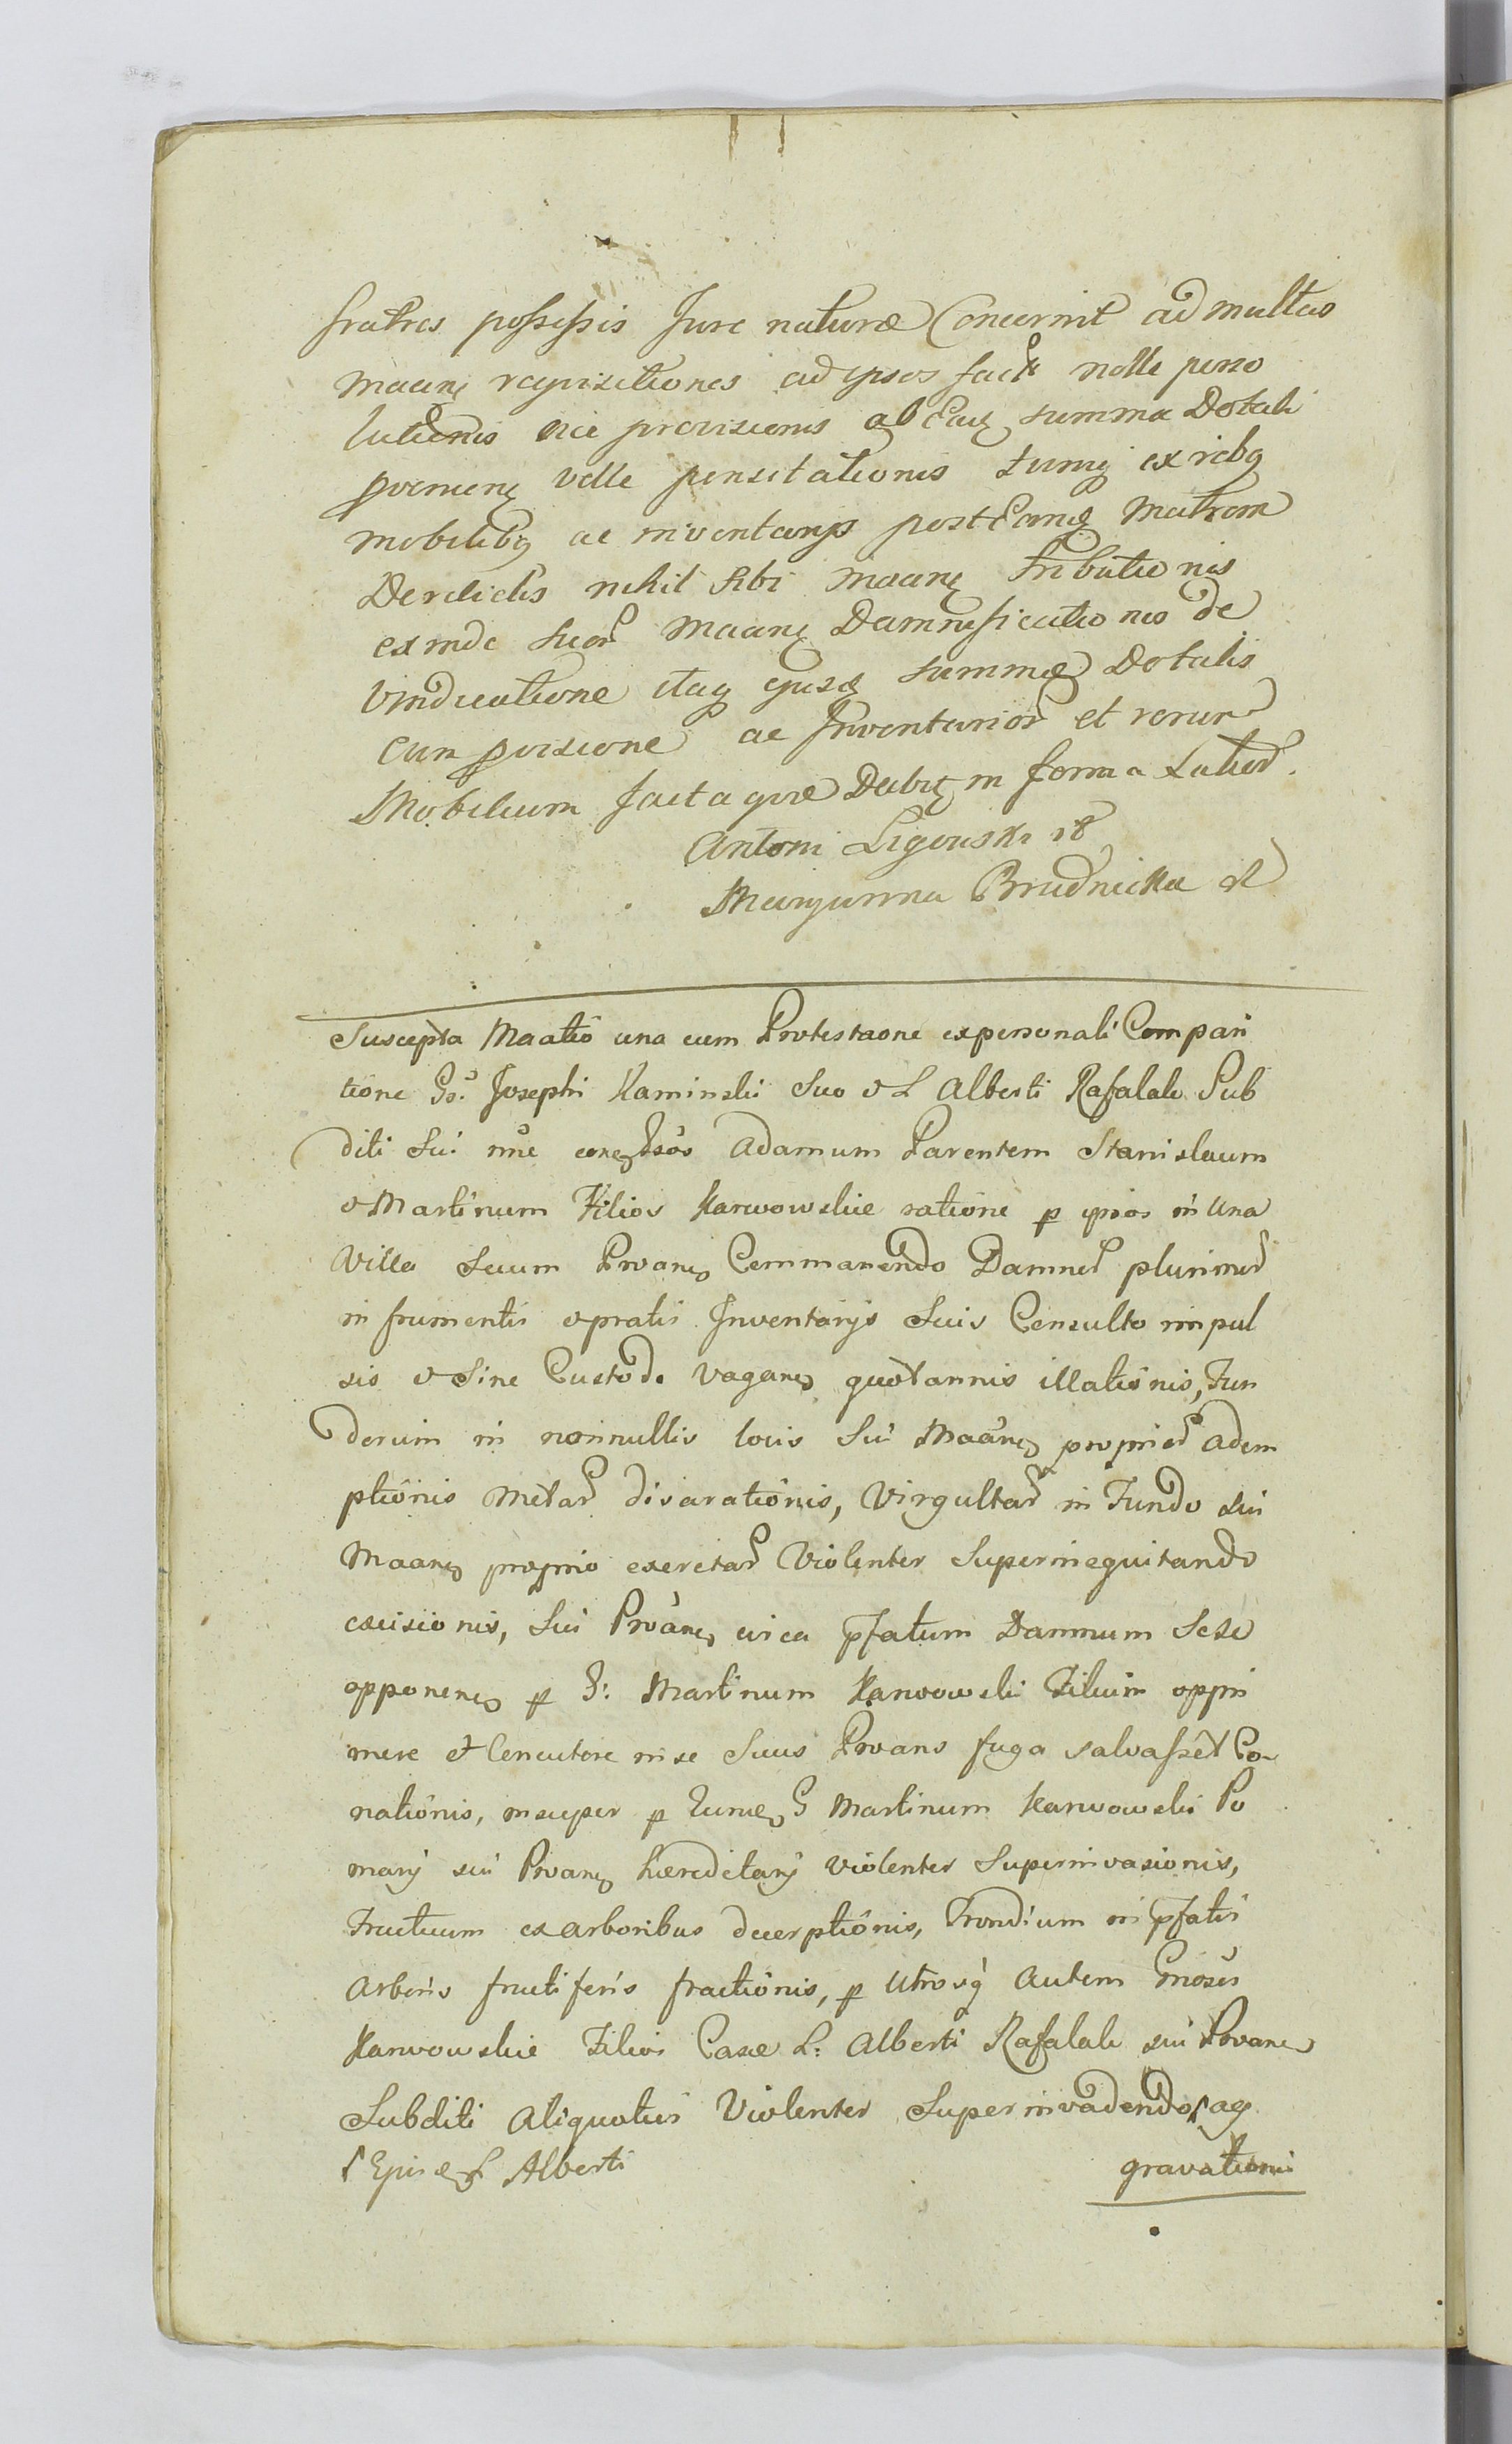 fratres possessis Jure naturæ Concernit ad multas
maanę requisitiones ad ipsos fact nolle perso
lutionis nec provisionis ab Eaq summa Dotali
provenienę velle pensitationis tumq ex rebq
mobilibq ac inventarijs post Eanq Matrem
Derelictis nihil sibi maanę tributionis
exinde suor Maanę Damnificationis de
Vindicatione itaq ejusq summæ Dotalis
cum provisione ac Inventarior et rerum
Mobilium facta quæ Dabit in forma Latior.
Antoni Ligowski
Maryanna Brudnicka
Suscepta Maatio una cum Protestaone ex personali Compari
tione Gs. Josephi Kaminski Suo & L Alberti Rafalak Sub
diti Sui nne conq Gsos Adamum Parentem Stanislaum
& Martinum Filios Karwowskie ratione p ipsos in Una
Villa Secum Proanę Commanendo Damnor plurimor
in frumentis & pratis Inventarijs Suis Consulto impul
sis & Sine Custode vaganę quotannis illationis, Fun
dorum in nonnullis locis Sui Maanę proprior adem
ptionis Metar disarationis, Virgultar in Fundo sui
Maanę proprio excretar Violenter Superinequitando
excisionis, Sui Proanę circa pfatum Damnum Sese
opponenę p G. Martinum Karwowski Filium oppri
mere et Concutere ni se Suus Proans fuga salvasset Co
nationis, insuper p Eumq G Martinum Karwowski Po
marij sui Proanę hæreditarij violenter Superinvasionis,
Fructuum ex arboribus decerptionis, Frondium in pfatis
arboris fructiferis fractionis, p Utrosq autem Gnosos
Karwowskie Filios Casæ L: Alberti Rafalak sui Proanę
Subditi aliquoties Violenter Superinvadendo, ag
Ejusq L Alberti
gravationis